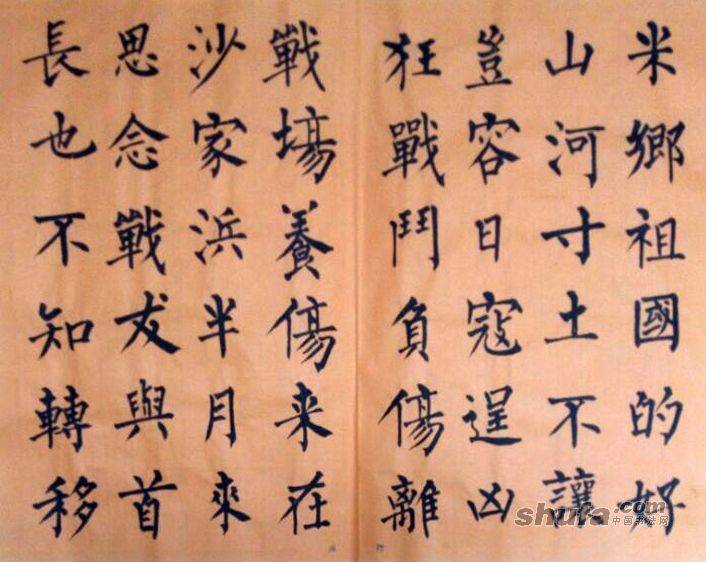 米鄉祖國的好
山河寸土不讓
豈容日寇逞凶
狂戰鬥負傷離
戰場養傷来在
沙家浜半月來
思念戰友與首
長也不知轉移
shufa.com
中国书法网